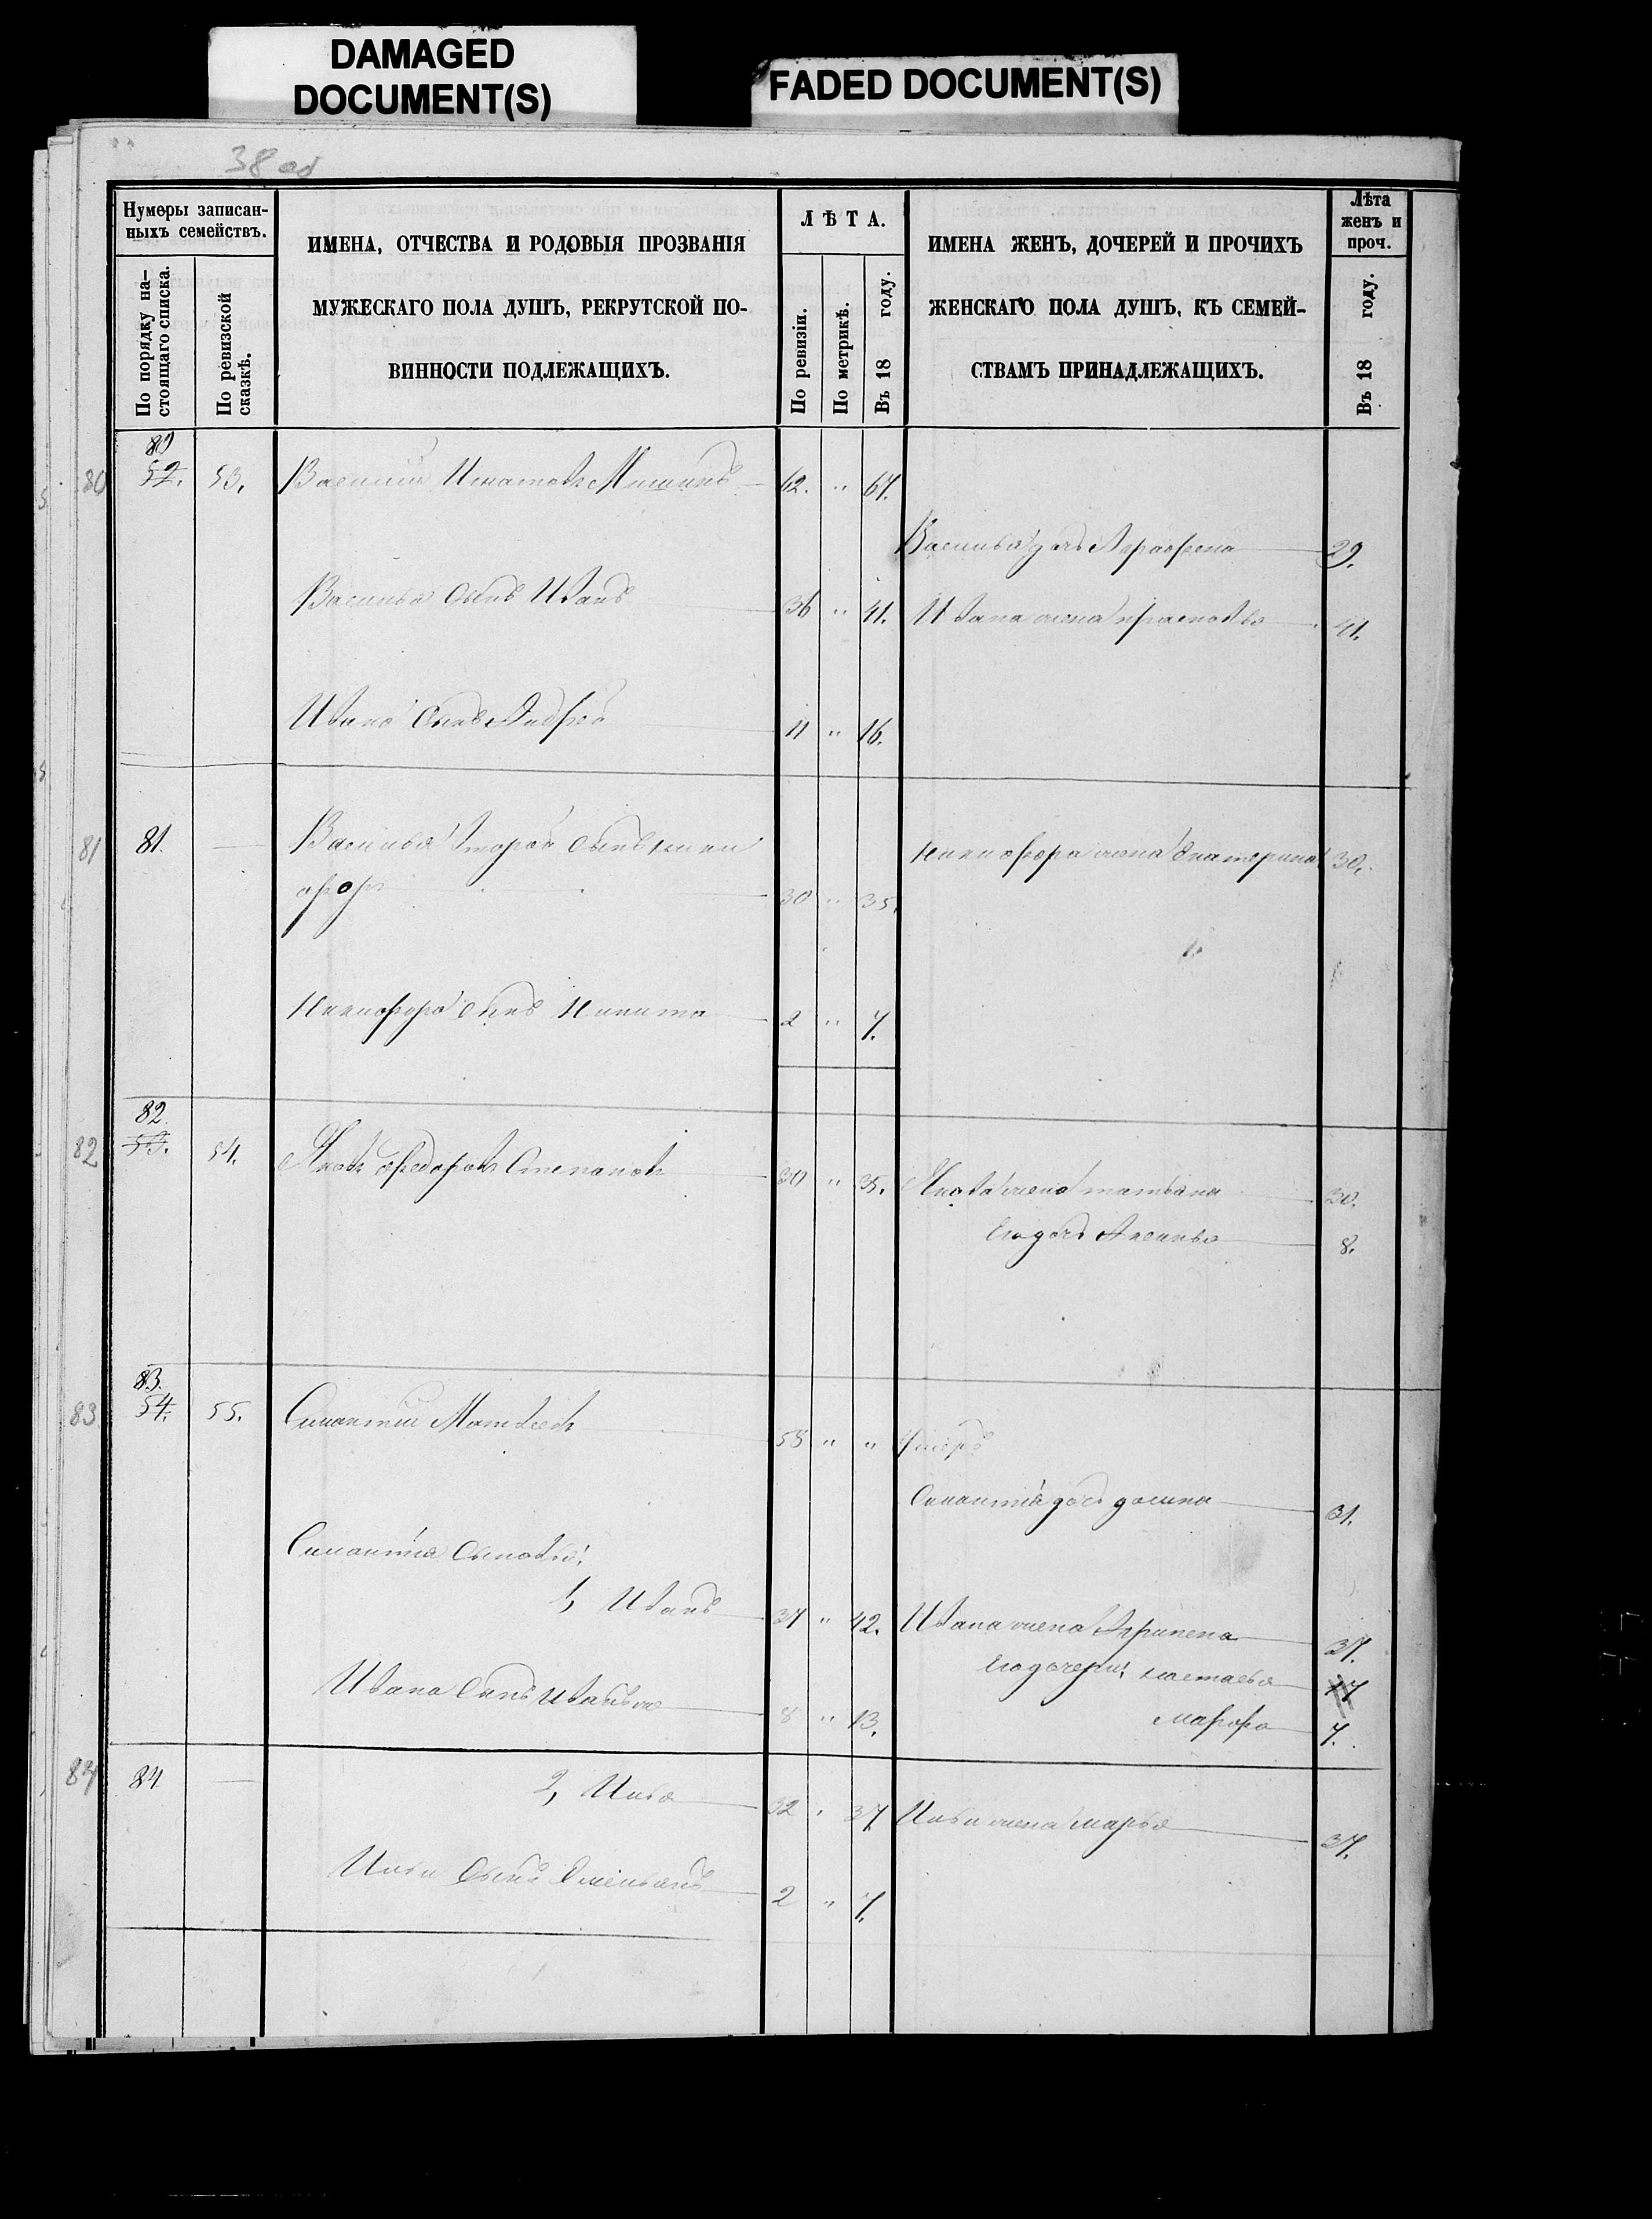 DAMAGED
DOCUMENT(S)
FADED DOCUMENT(S)
38 об
Нумеры записан-
ныхъ семействъ.
По порядку на-
стоящаго списка.
По ревизской
сказкѣ.
ИМЕНА, ОТЧЕСТВА И РОДОВЫЯ ПРОЗВАНІЯ
МУЖЕСКАГО ПОЛА ДУШЪ, РЕКРУТСКОЙ ПО-
ВИННОСТИ ПОДЛЕЖАЩИХЪ.
ЛѢТА.
По ревизіи.
По метрикѣ.
Въ 18 году.
ИМЕНА ЖЕНЪ, ДОЧЕРЕЙ И ПРОЧИХЪ
ЖЕНСКАГО ПОЛА ДУШЪ, КЪ СЕМЕЙ-
СТВАМЪ ПРИНАДЛЕЖАЩИХЪ.
Лѣта
женъ и
проч.
Въ 18 году.
80
80 52. 53. Василій Игнатовъ Мишинъ 62. " 67.
Василья дочь Аграфена 29.
Василья сынъ Иванъ 36 " 41. Ивана жена прасковья 41.
Ивана сынъ Андрей 11 " 16.
81 81. Василья второй сынъ ники
форъ 30 " 35. никифора жена Екатерина 30.
Никифора сынъ Никита 2 " 7.
82
82 53. 54. Яковъ федоровъ Степановъ 30 " 35. Якова жена татьяна 30.
Его дочь Аксинья 8.
83.
83 54. 55. Силантій Матвеевъ 55 " " Умеръ
Силантія дочь домна 31.
Силантія сыновья:
1, Иванъ 37 " 42. Ивана жена Агрипена 37.
Его дочери: настасья 17
Ивана сынъ 8 " 13. марфа 7.
84 84 2, Илья 32 " 37 Ильи жена марья 37.
Ильи сынъ Емельянъ 2 " 7.